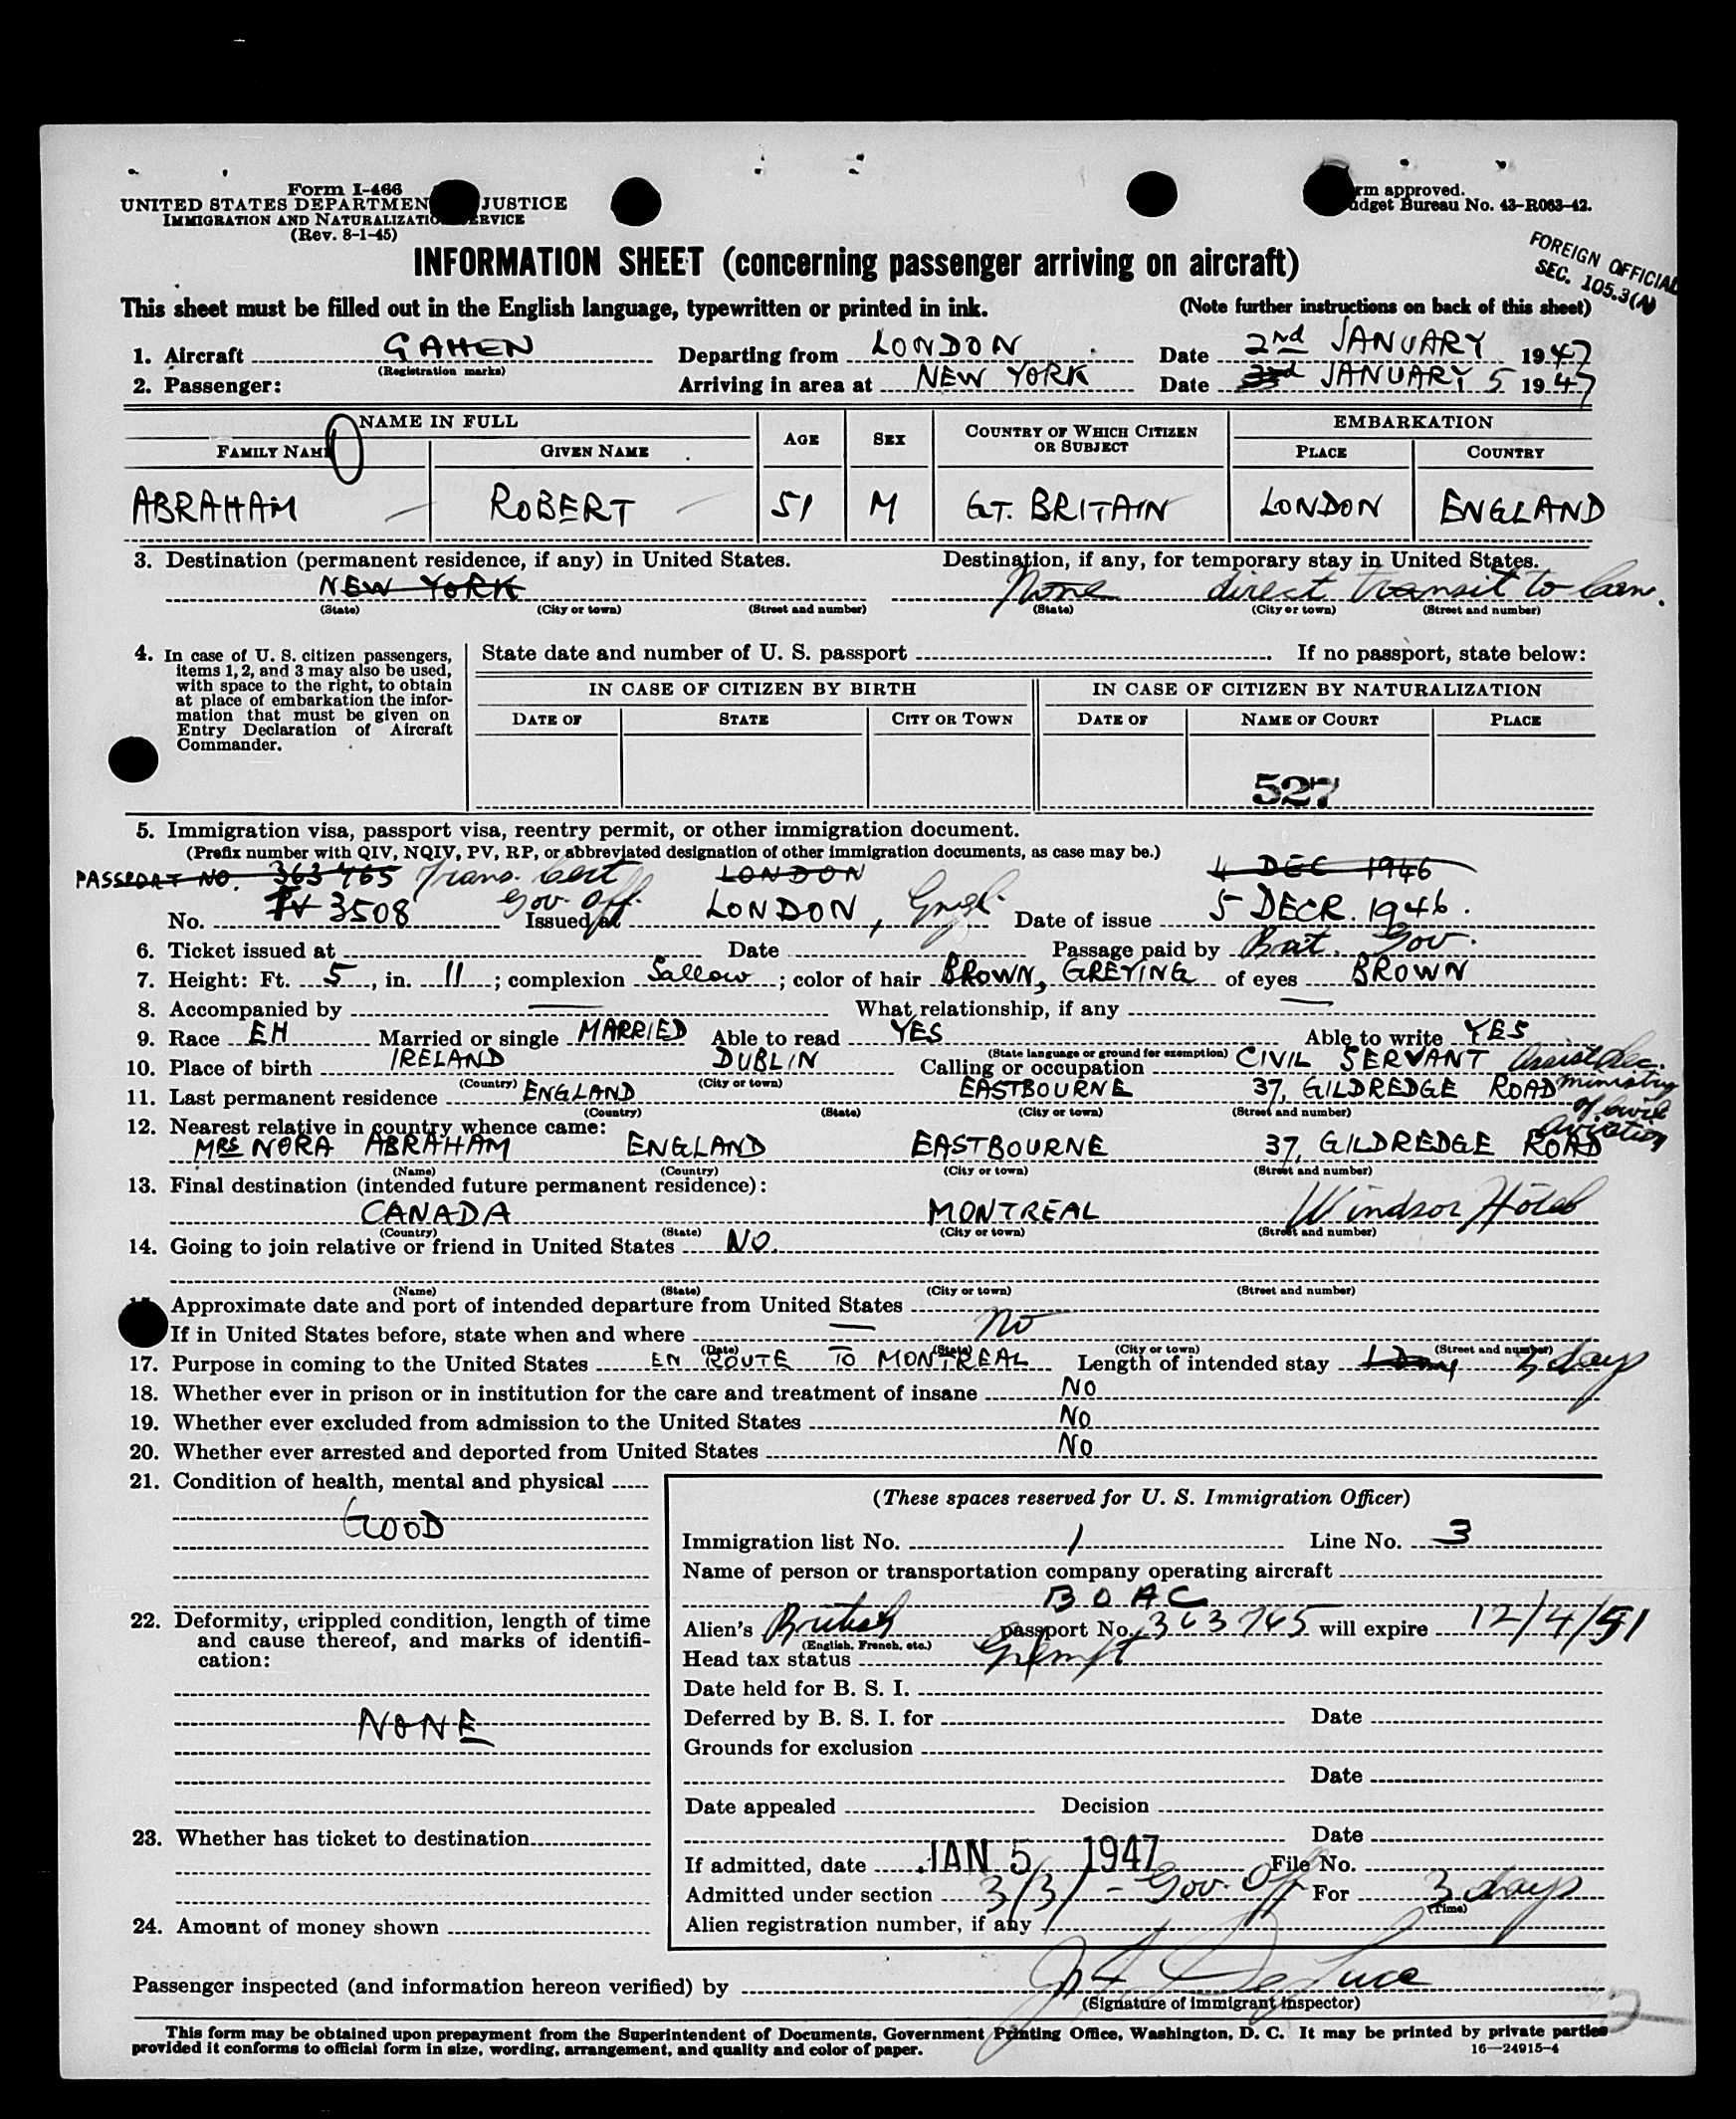 Form I-466
UNITED STATES DEPARTMEN JUSTICE
IMMIGRATION AND NATURALIZATIO ERVICE
(Rev. 8-1-45)
rm approved.
udget Bureau No. 43-R063-42.
FOREIGN OFFICIAL
SEC. 105.3(A)
INFORMATION SHEET (concerning passenger arriving on aircraft)
This sheet must be filled out in the English language, typewritten or printed in ink. (Note further instructions on back of this sheet)
1. Aircraft GAHEN Departing from LONDON Date 2nd JANUARY 1947
(Registration marks)
2. Passenger: Arriving in area at NEW YORK Date 3rd JANUARY 5 1947
NAME IN FULL AGE SEX COUNTRY OF WHICH CITIZEN OR SUBJECT EMBARKATION
FAMILY NAME GIVEN NAME PLACE COUNTRY
ABRAHAM ROBERT 51 M GT. BRITAIN LONDON ENGLAND
3. Destination (permanent residence, if any) in United States. Destination, if any, for temporary stay in United States.
NEW YORK None direct transit to Can.
(State) (City or town) (Street and number) (State) (City or town) (Street and number)
4. In case of U. S. citizen passengers, items 1, 2, and 3 may also be used, with space to the right, to obtain at place of embarkation the information that must be given on Entry Declaration of Aircraft Commander.
State date and number of U. S. passport If no passport, state below:
IN CASE OF CITIZEN BY BIRTH IN CASE OF CITIZEN BY NATURALIZATION
DATE OF STATE CITY OR TOWN DATE OF NAME OF COURT PLACE
527
5. Immigration visa, passport visa, reentry permit, or other immigration document.
(Prefix number with QIV, NQIV, PV, RP, or abbreviated designation of other immigration documents, as case may be.)
PASSPORT NO. 363765 Trans. Cert LONDON 4 DEC 1946
No. PV 3508 Gov. Off. Issued at LONDON, Engl. Date of issue 5 DECR. 1946.
6. Ticket issued at Date Passage paid by Brit. Gov.
7. Height: Ft. 5, in. 11; complexion Sallow; color of hair BROWN, GREYING of eyes BROWN
8. Accompanied by — What relationship, if any —
9. Race EH Married or single MARRIED Able to read YES Able to write YES
(State language or ground for exemption)
10. Place of birth IRELAND DUBLIN Calling or occupation CIVIL SERVANT Assist Sec. Ministry of Civil Aviation
(Country) (City or town)
11. Last permanent residence ENGLAND EASTBOURNE 37, GILDREDGE ROAD
(Country) (State) (City or town) (Street and number)
12. Nearest relative in country whence came:
MRS NORA ABRAHAM ENGLAND EASTBOURNE 37, GILDREDGE ROAD
(Name) (Country) (City or town) (Street and number)
13. Final destination (intended future permanent residence):
CANADA MONTREAL Windsor Hotel
(Country) (State) (City or town) (Street and number)
14. Going to join relative or friend in United States NO.
(Name) (State) (City or town) (Street and number)
Approximate date and port of intended departure from United States
If in United States before, state when and where — No
(Date) (State) (City or town) (Street and number)
17. Purpose in coming to the United States EN ROUTE TO MONTREAL Length of intended stay 1 Day 3 days
18. Whether ever in prison or in institution for the care and treatment of insane No
19. Whether ever excluded from admission to the United States No
20. Whether ever arrested and deported from United States No
21. Condition of health, mental and physical
GOOD
22. Deformity, crippled condition, length of time and cause thereof, and marks of identification:
NONE
23. Whether has ticket to destination
24. Amount of money shown
(These spaces reserved for U. S. Immigration Officer)
Immigration list No. 1 Line No. 3
Name of person or transportation company operating aircraft
BOAC
Alien's British passport No. 363765 will expire 12/4/51
(English, French, etc.)
Head tax status Exempt
Date held for B. S. I.
Deferred by B. S. I. for Date
Grounds for exclusion
Date
Date appealed Decision
Date
If admitted, date JAN 5 1947 File No.
Admitted under section 3/3/ - Gov. Off For 3 days
(Time)
Alien registration number, if any
Passenger inspected (and information hereon verified) by
(Signature of immigrant inspector)
This form may be obtained upon prepayment from the Superintendent of Documents, Government Printing Office, Washington, D. C. It may be printed by private parties
provided it conforms to official form in size, wording, arrangement, and quality and color of paper. 16—24915-4